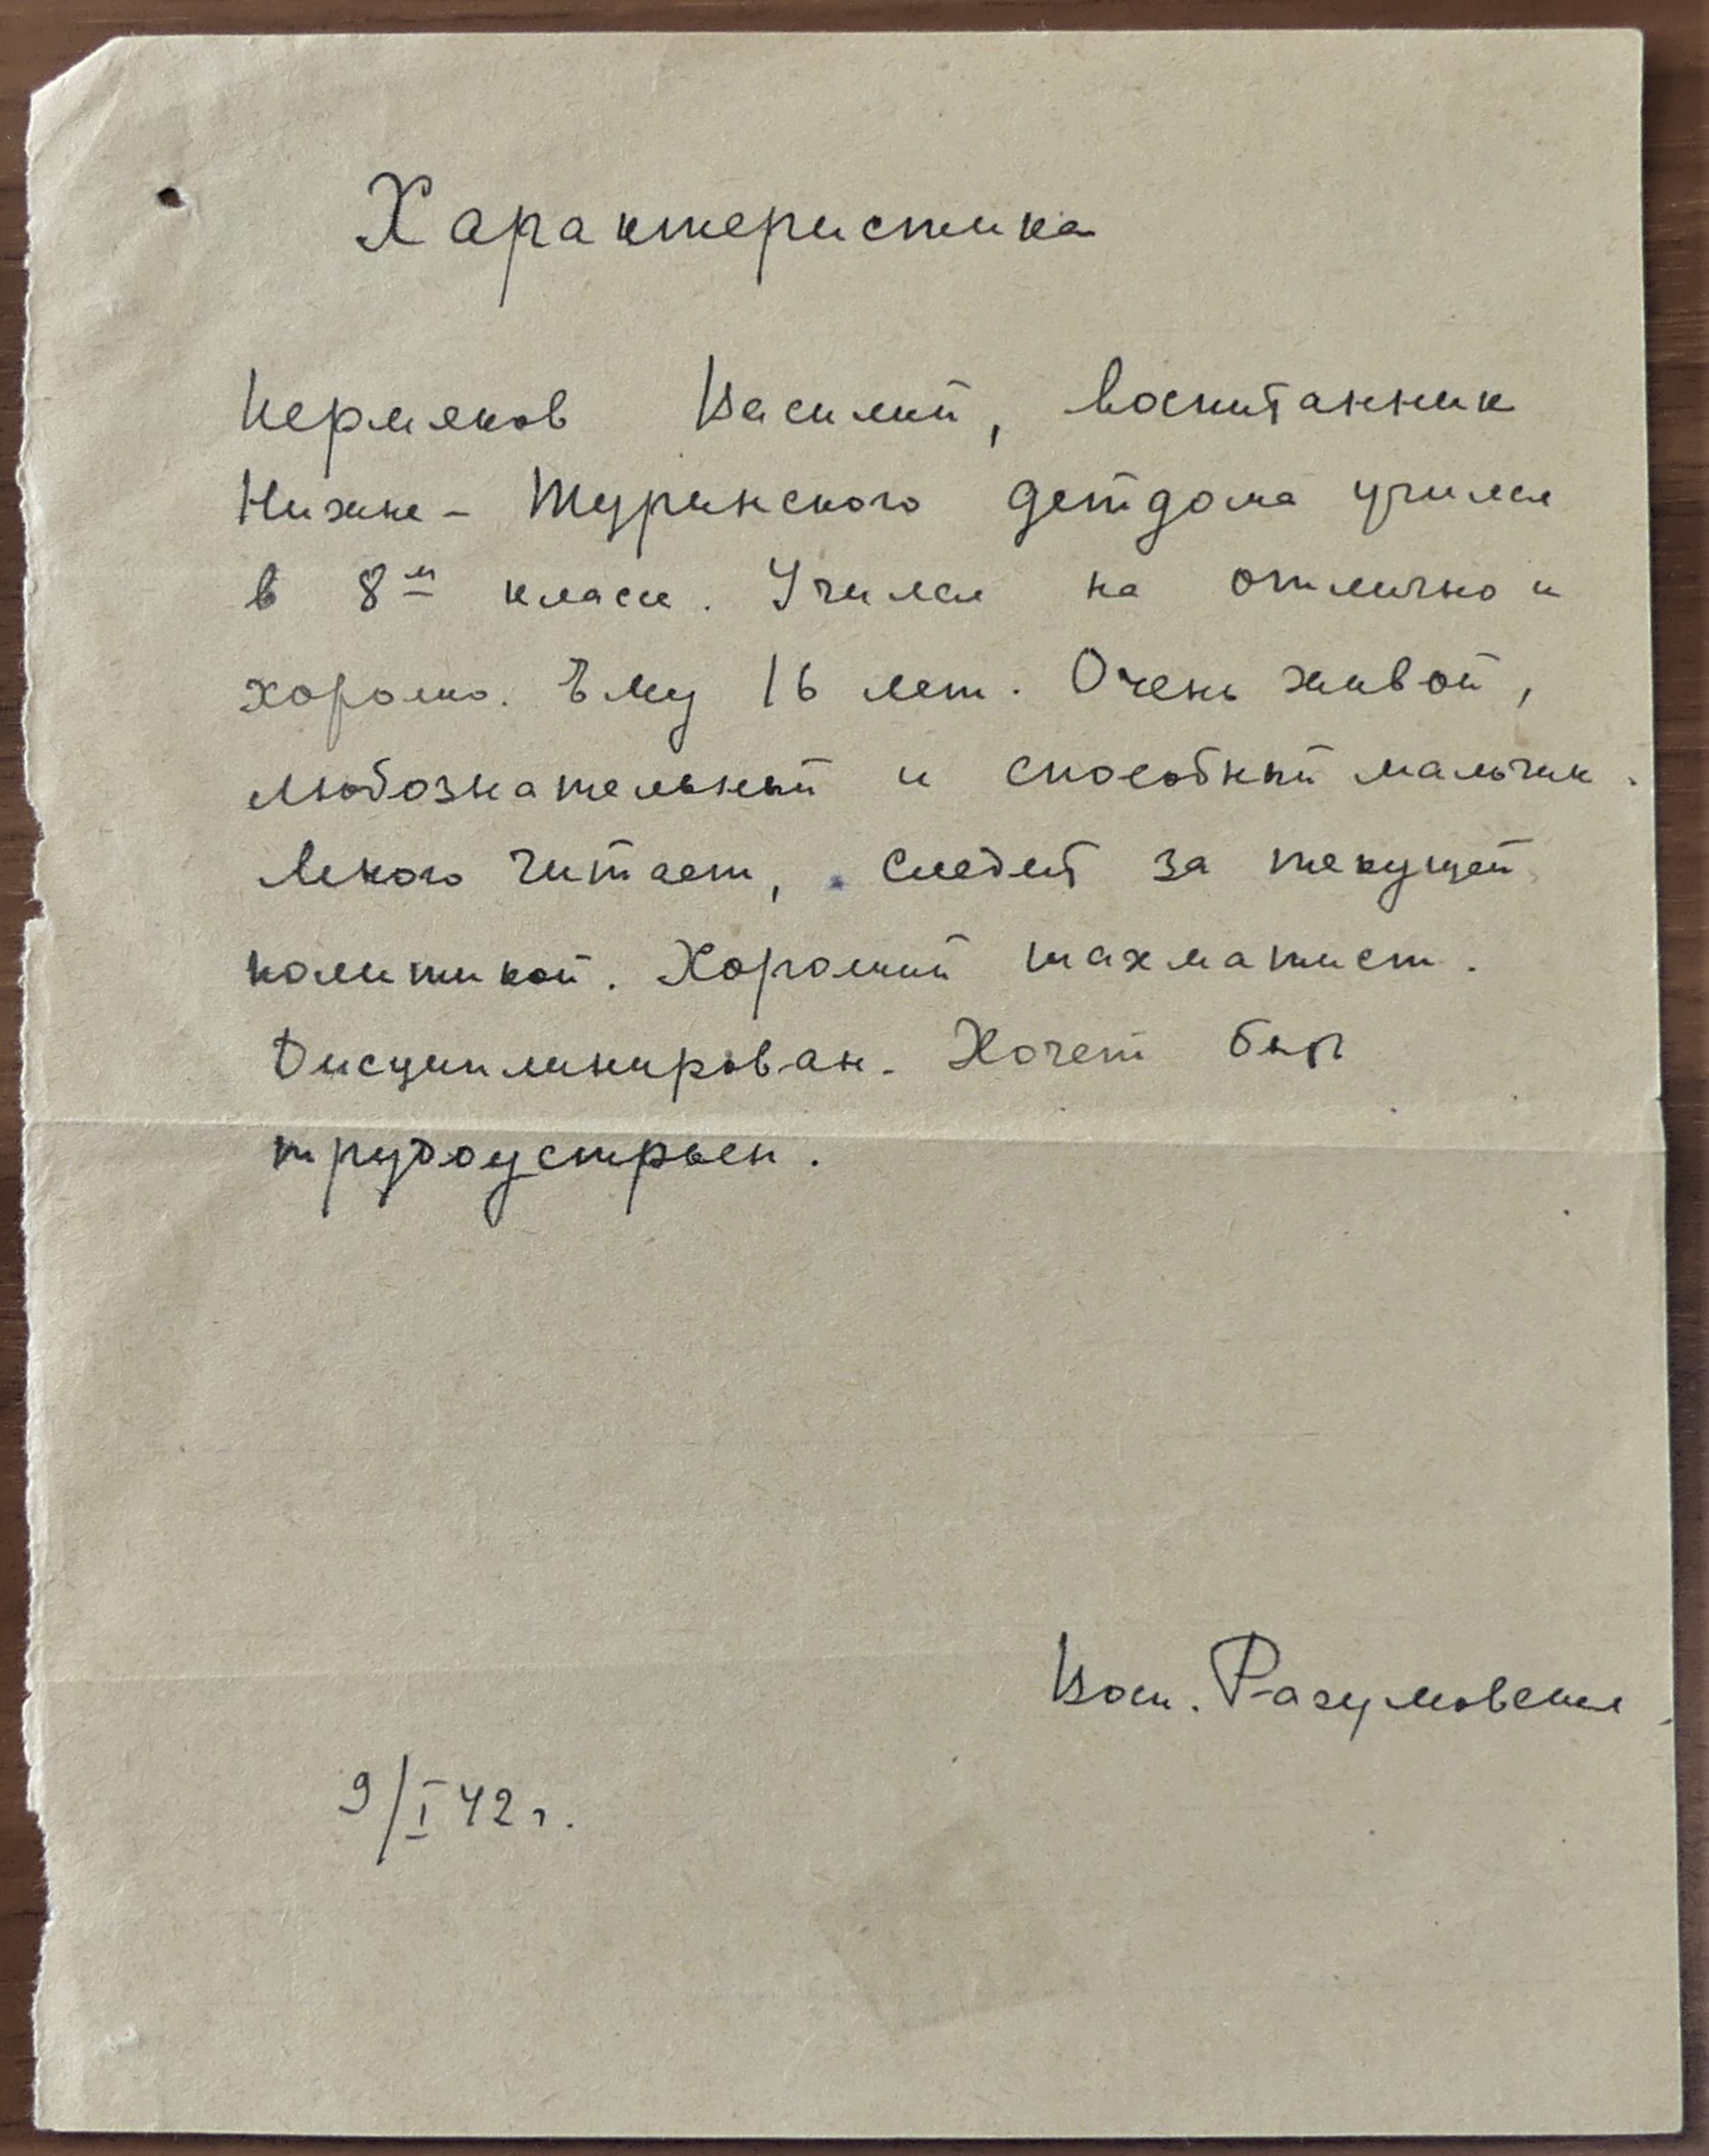 Характеристика
Пермяков Василий, воспитанник
Нижне-Туринского детдома учился
в 8м классе. Учился на отлично и
хорошо. Ему 16 лет. Очень живой,
любознательный и способный мальчик.
Много читает, следит за текущей
политикой. Хороший шахматист.
Дисциплинирован. Хочет быть
трудоустроен.
Восп. Разумовская
9/I 42 г.